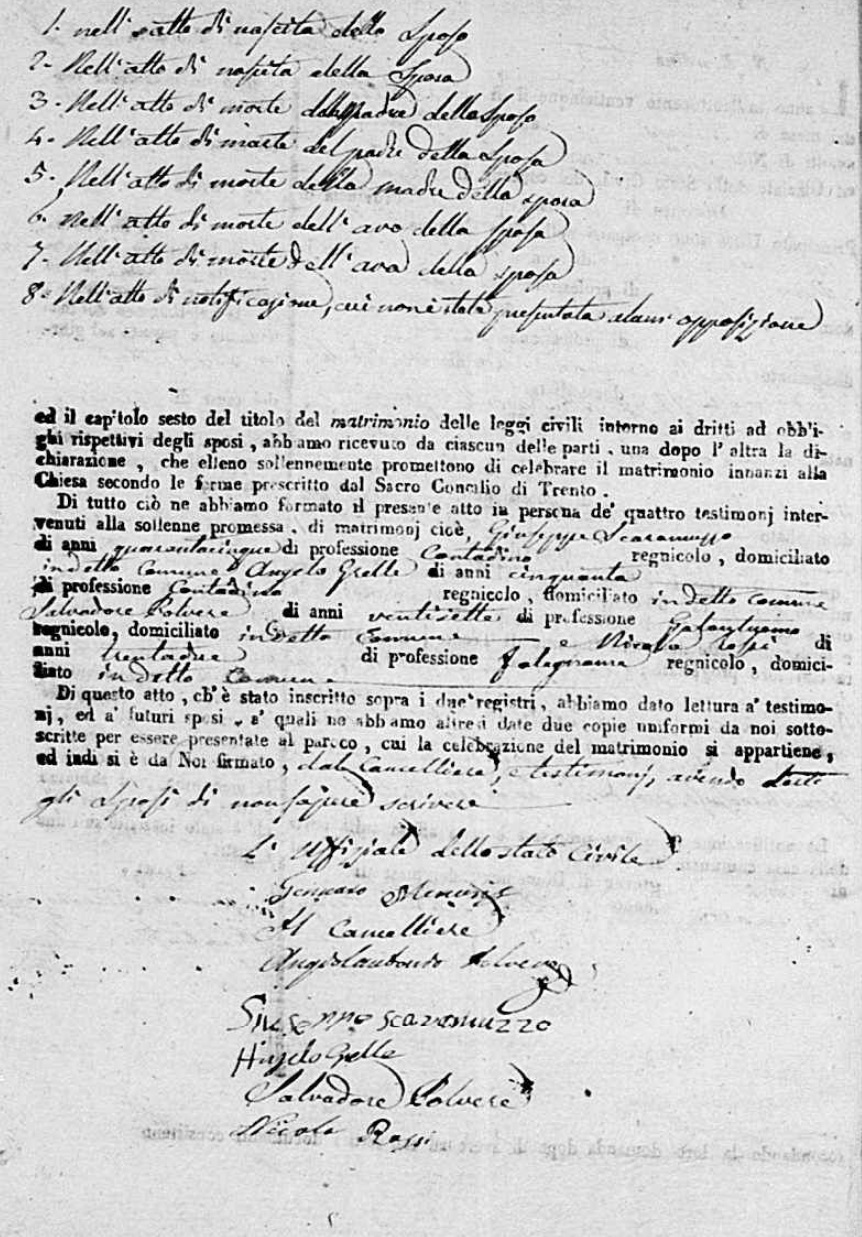 1. nell'atto di nascita dello Sposo
2. Nell'atto di nascita della Sposa
3. Nell'atto di morte del padre dello Sposo
4. Nell'atto di morte del padre della Sposa
5. Nell'atto di morte della madre della sposa
6. Nell'atto di morte dell'avo della sposa
7. Nell'atto di morte dell'ava della sposa
8. Nell'atto di notificazione, cui non è stata presentata alcun' opposizione
ed il cap'tolo sesto del titolo del matrimonio delle leggi civili intorno ai dritti ad obb'i-
ghi rispettivi degli sposi, abbiamo ricevuto da ciascun delle parti, una dopo l' altra la di-
chiarazione, che elleno sollennemente promettono di celebrare il matrimonio innanzi alla
Chiesa secondo le forme prescritto dal Sacro Concilio di Trento.
Di tutto ciò ne abbiamo formato il presente atto in persona de' quattro testimonj inter-
venuti alla sollenne promessa, di matrimonj cioè, Giuseppe Scaramuzzo
di anni quarantacinque di professione Contadino regnicolo, domiciliato
in detto Comune Angelo Grelle di anni cinquanta
di professione Contadino regnicolo, domiciliato in detto Comune
Salvadore Polvere di anni ventisette di professione Galantuomo
regnicolo, domiciliato in detto Comune e Nicola Rossi di
anni trentadue di professione falegname regnicolo, domici-
liato in detto Comune
Di questo atto, ch'è stato inscritto sopra i due registri, abbiamo dato lettura a' testimo-
nj, ed a' futuri sposi, a' quali ne abbiamo altresì date due copie uniformi da noi sotto-
scritte per essere presentate al parroco, cui la celebrazione del matrimonio si appartiene,
ed indi si è da Noi firmato, dal Cancelliere, e testimonj, avendo detti
gli Sposi di non sapere scrivere
L' Uffiziale dello stato Civile
Gennaro
Il Cancelliere
Angelantonio Polvere
Giuseppe scaramuzzo
Angelo Grelle
Salvadore Polvere
Nicola Rossi